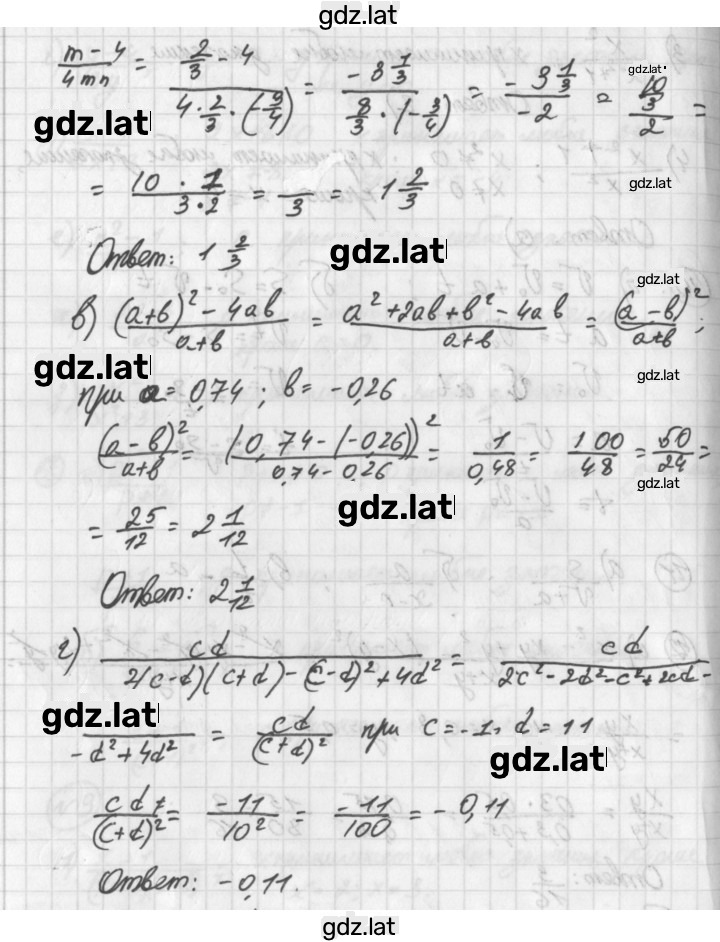 gdz.lat
(m - 4)/(4mn) = (2/3 - 4)/(4 · 2/3 · (-3/4)) = (- 3 1/3)/(8/3 · (-3/4)) = (- 3 1/3)/(-2) = (10/3)/2 =
gdz.lat
gdz.lat
= (10 · 1)/(3 · 2) = /3 = 1 2/3
gdz.lat
Ответ: 1 2/3
gdz.lat
gdz.lat
в) ((a+b)² - 4ab)/(a+b) = (a² + 2ab + b² - 4ab)/(a+b) = (a - b)²/(a+b) ;
gdz.lat
gdz.lat
при a = 0,74 ; b = -0,26
(a - b)²/(a+b) = (0,74 - (-0,26))²/(0,74 - 0,26) = 1/0,48 = 100/48 = 50/24 =
gdz.lat
gdz.lat
= 25/12 = 2 1/12
Ответ: 2 1/12
г) cd/(2(c-d)(c+d) - (c-d)² + 4d²) = cd/(2c² - 2d² - c² + 2cd -
gdz.lat
- d² + 4d²) = cd/(c+d)² при c = -1, d = 11
gdz.lat
cd/(c+d)² = -11/10² = -11/100 = -0,11
Ответ: -0,11.
gdz.lat